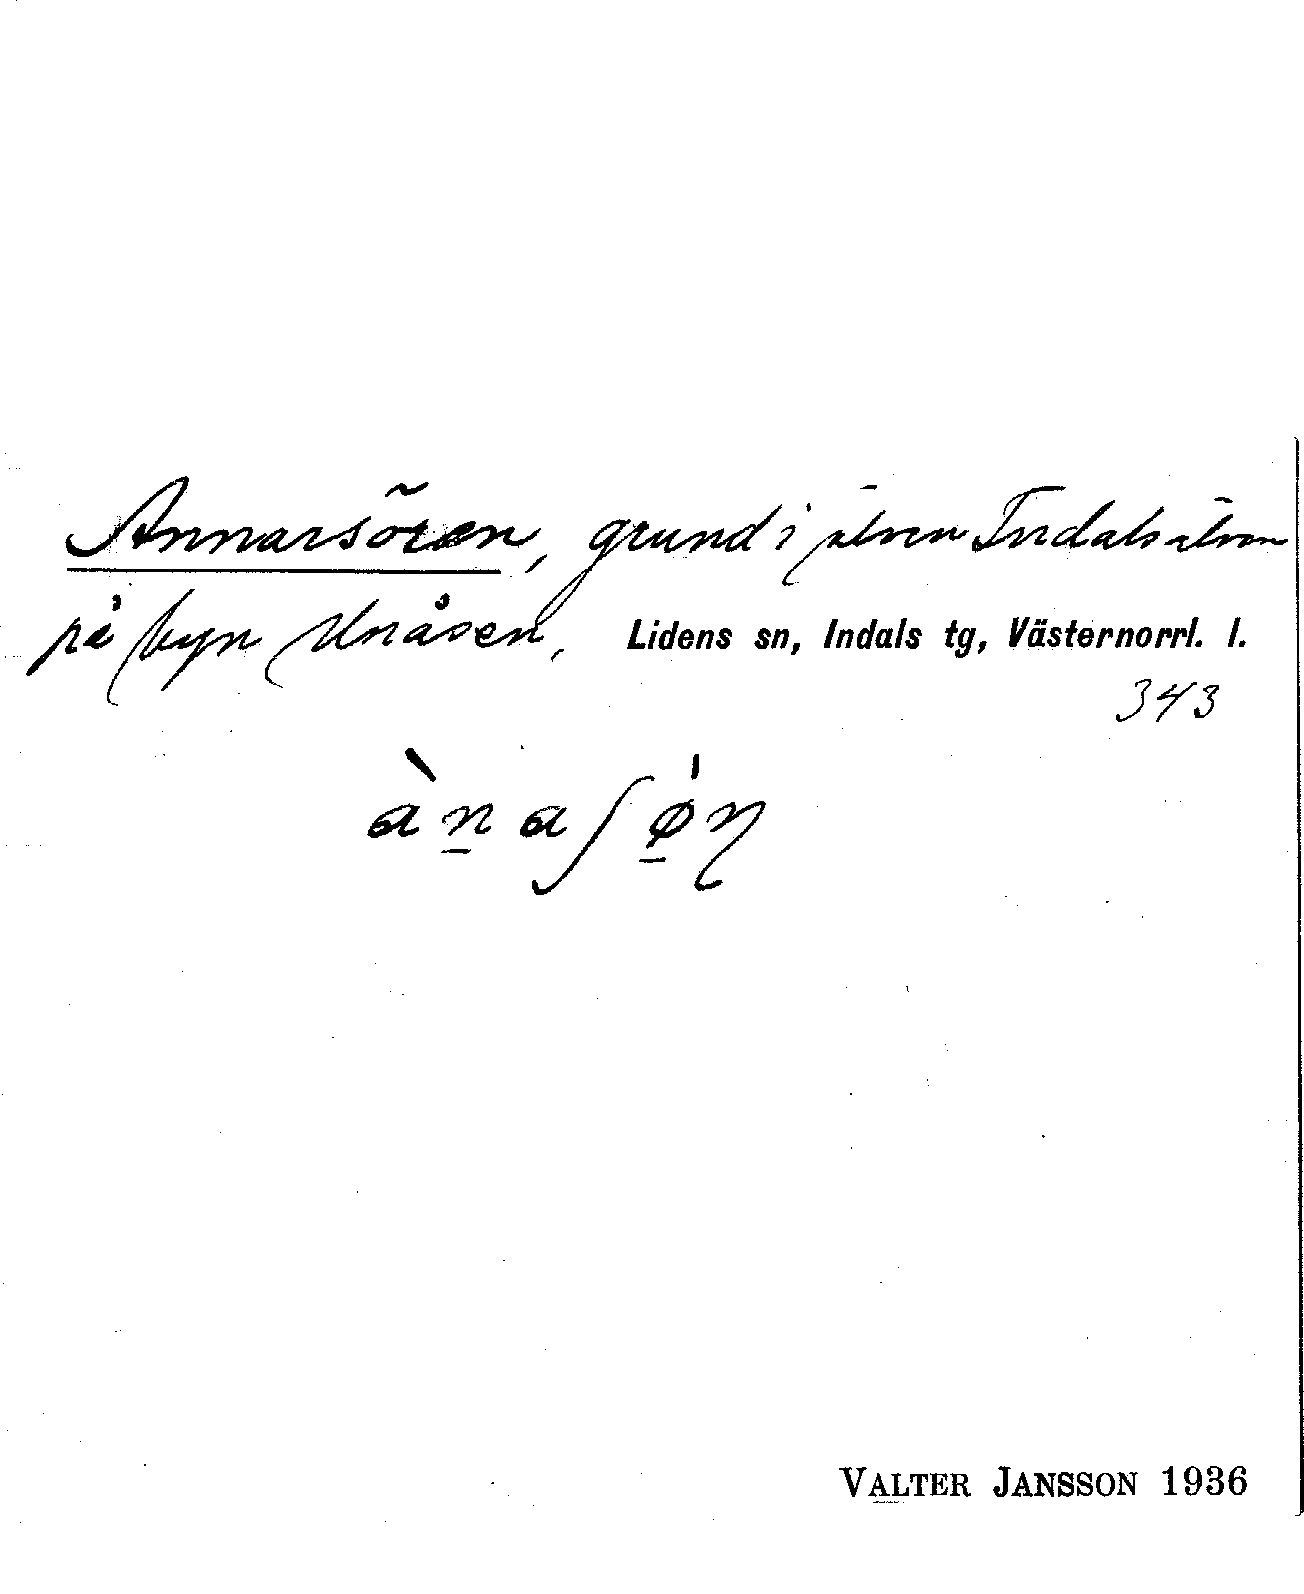 Annarsören, grund i älven Indalsälven
på byn Unåsen, Lidens sn, Indals tg, Västernorrl. l.
343
VALTER JANSSON 1936